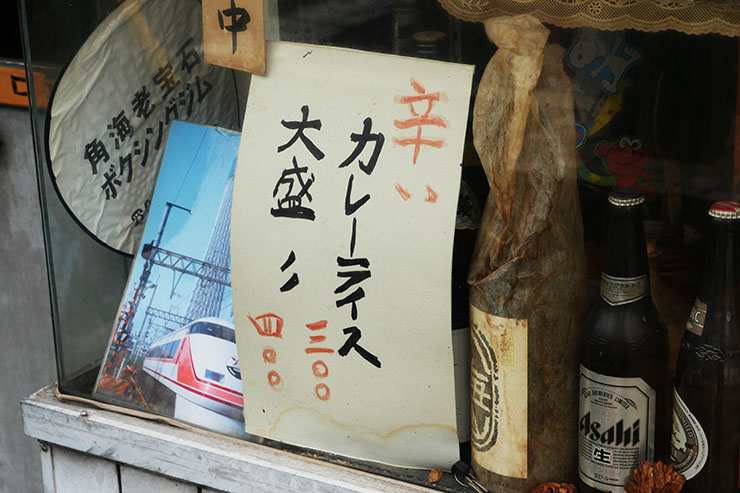 中
角海老宝石
ボクシングジム
辛い
カレーライス
三〇〇
大盛〃
四〇〇
Asahi
生